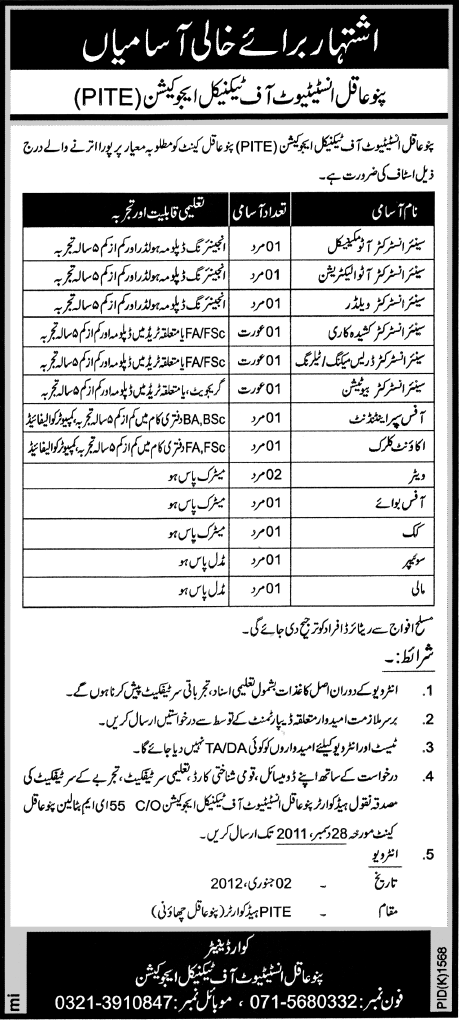 اشتہار برائے خالی آسامیاں
پنوعاقل انسٹیٹیوٹ آف ٹیکنیکل ایجوکیشن (PITE)
پنوعاقل انسٹیٹیوٹ آف ٹیکنیکل ایجوکیشن (PITE) پنوعاقل کینٹ کو مطلوبہ معیار پر پورا اترنے والے درج
ذیل اسٹاف کی ضرورت ہے۔
نام آسامی تعداد آسامی تعلیمی قابلیت اور تجربہ
سینئر انسٹرکٹر آٹو مکینیکل 01 مرد انجینئرنگ ڈپلومہ ہولڈر اور کم از کم ۵ سالہ تجربہ
سینئر انسٹرکٹر آٹو الیکٹریشن 01 مرد انجینئرنگ ڈپلومہ ہولڈر اور کم از کم ۵ سالہ تجربہ
سینئر انسٹرکٹر ویلڈر 01 مرد انجینئرنگ ڈپلومہ ہولڈر اور کم از کم ۵ سالہ تجربہ
سینئر انسٹرکٹر کشیدہ کاری 01 عورت FA/FSc یا متعلقہ ٹریڈ میں ڈپلومہ اور کم از کم ۵ سالہ تجربہ
سینئر انسٹرکٹر ڈریس میکنگ/ٹیلرنگ 01 عورت FA/FSc یا متعلقہ ٹریڈ میں ڈپلومہ اور کم از کم ۵ سالہ تجربہ
سینئر انسٹرکٹر بیوٹیشن 01 عورت گریجویٹ، یا متعلقہ ٹریڈ میں ڈپلومہ اور کم از کم ۵ سالہ تجربہ
آفس سپرانٹنڈنٹ 01 مرد BA,BSc دفتری کام میں کم از کم ۵ سالہ تجربہ، کمپیوٹر کوالیفائیڈ
اکاؤنٹ کلرک 01 مرد FA,FSc دفتری کام میں کم از کم ۵ سالہ تجربہ، کمپیوٹر کوالیفائیڈ
ویٹر 02 مرد میٹرک پاس ہو
آفس بوائے 01 مرد میٹرک پاس ہو
کک 01 مرد میٹرک پاس ہو
سوئیپر 01 مرد مڈل پاس ہو
مالی 01 مرد مڈل پاس ہو
مسلح افواج سے ریٹائرڈ افراد کو ترجیح دی جائے گی۔
شرائط:۔
1. انٹرویو کے دوران اصل کاغذات بشمول تعلیمی اسناد، تجرباتی سرٹیفکیٹ پیش کرنا ہوں گے۔
2. برسر ملازمت امیدوار متعلقہ ڈیپارٹمنٹ کے توسط سے درخواستیں ارسال کریں۔
3. ٹیسٹ اور انٹرویو کیلئے امیدواروں کو کوئی TA/DA نہیں دیا جائے گا۔
4. درخواست کے ساتھ اپنے ڈومیسائل، قومی شناختی کارڈ، تعلیمی سرٹیفکیٹ، تجربے کے سرٹیفکیٹ کی
مصدقہ نقول ہیڈ کوارٹر پنوعاقل انسٹیٹیوٹ آف ٹیکنیکل ایجوکیشن C/O 55 ای ایم بٹالین پنوعاقل
کینٹ مورخہ 28 دسمبر، 2011 تک ارسال کریں۔
5. انٹرویو
تاریخ - 02 جنوری، 2012
مقام - PITE ہیڈ کوارٹر (پنوعاقل چھاؤنی)
کوارڈینیٹر
پنوعاقل انسٹیٹیوٹ آف ٹیکنیکل ایجوکیشن
فون نمبر: 071-5680332، موبائل نمبر: 0321-3910847
mi
PID(K)1568